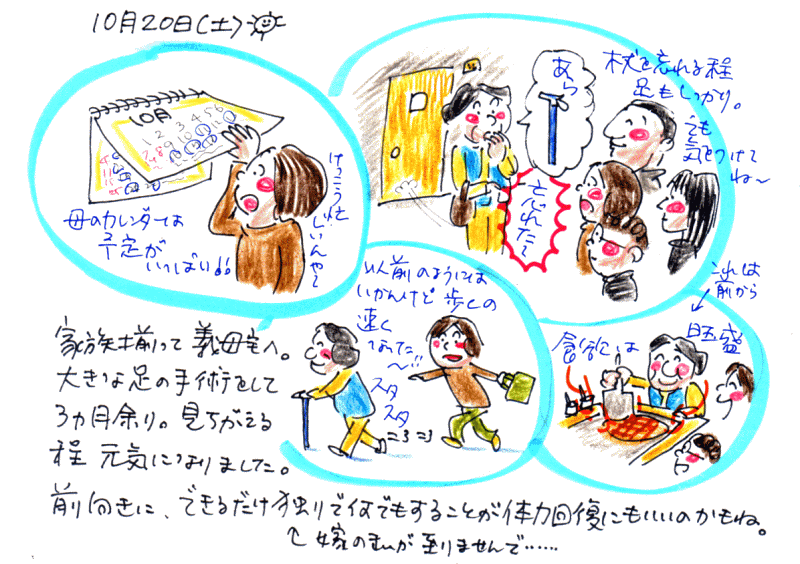 10月20日(土)
10月
1 2 3 4 5 6
母のカレンダーは
予定が
いっぱい!!
けっこう忙しいんや~
あら
忘れたて
杖を忘れる程
足もしっかり。
でも
気をつけて
ね~
以前のようには
いかんけど歩くの
速く
なった~!!
スタ
スタ
これは
前から
食欲は
旺盛
家族揃って義母宅へ。
大きな足の手術をして
3カ月余り。見ちがえる
程 元気になりました。
前向きに、できるだけ独りで何でもすることが体力回復にもいいのかもね。
嫁のまいが至りませんで……